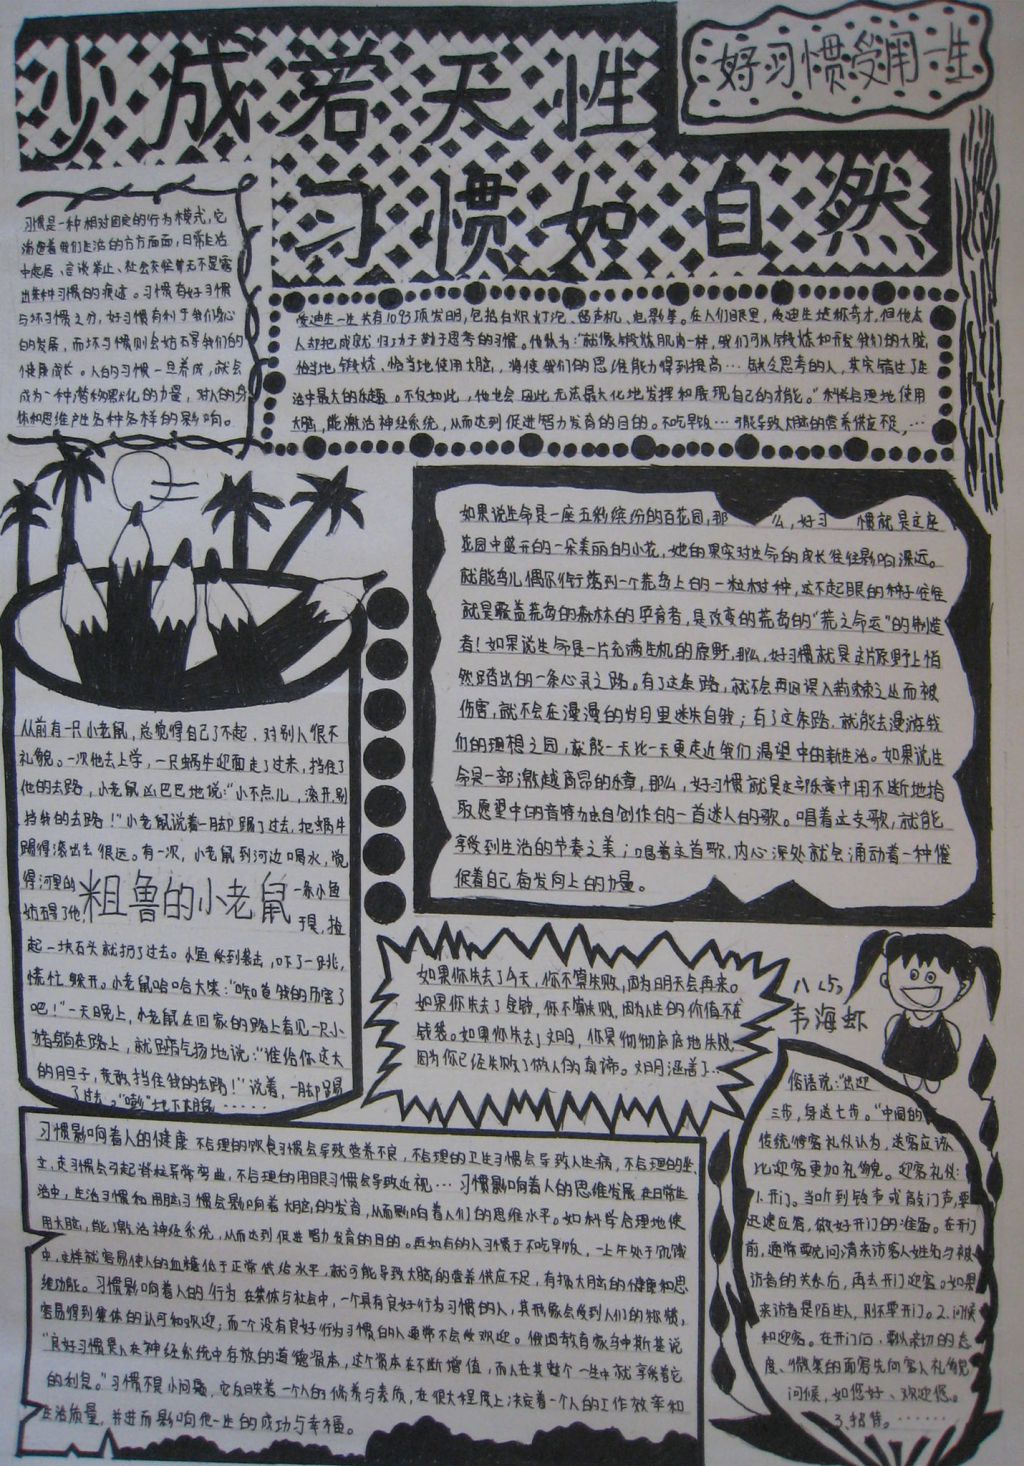 少成若天性
习惯如自然
好习惯受用一生
习惯是一种相对固定的行为模式,它
渗透着我们生活的方方面面,日常生活
中起居、言谈举止、社会交往等无不是露
出某种习惯的痕迹。习惯有好习惯
与坏习惯之分,好习惯有利于我们身心
的发展,而坏习惯则会妨碍我们的
健康成长。人的习惯一旦养成,就会
成为一种潜移默化的力量,对人的身
体和思维产生各种各样的影响。
爱迪生一生共有1093项发明,包括白炽灯泡、留声机、电影等。在人们眼里,爱迪生堪称奇才,但他本
人却把成就归功于勤于思考的习惯。他认为:“就像锻炼肌肉一样,我们可以锻炼和开发我们的大脑
恰当地锻炼、恰当地使用大脑,将使我们的思维能力得到提高…缺乏思考的人,其实错过了生
活中最大的乐趣。不仅如此,他也会因此无法最大化地发挥和展现自己的才能。”科学合理地使用
大脑,能激活神经系统,从而达到促进智力发育的目的。不吃早饭…可能导致大脑的营养供应不足,…
如果说生命是一座五彩缤纷的百花园,那么,好习惯就是这座
花园中盛开的一朵美丽的小花,她的果实对生命的成长往往影响深远。
就能鸟儿偶尔衔落到一个荒岛上的一粒树种,这不起眼的种子往往
就是覆盖荒岛的森林的孕育者,是改变的荒岛的“荒之命运”的制造
者!如果说生命是一片充满生机的原野,那么,好习惯就是这片原野上悄
然踏出的一条心灵之路。有了这条路,就不会再因误入荆棘之丛而被
伤害,就不会在漫漫的岁月里迷失自我;有了这条路,就能去漫游我
们的理想之园,就能一天比一天更走近我们渴望中的新生活。如果说生
命是一部激越高昂的乐章,那么,好习惯就是这部乐章中用不断地拾
取愿望中的音符为由自创作的一首迷人的歌。唱着这支歌,就能
享受到生活的节奏之美;唱着这首歌,内心深处就会涌动着一种催
促着自己奋发向上的力量。
粗鲁的小老鼠
从前有一只小老鼠,总觉得自己了不起,对别人很不
礼貌。一次他去上学,一只蜗牛迎面走了过来,挡住了
他的去路,小老鼠凶巴巴地说:“小不点儿,滚开,别
挡我的去路!”小老鼠说着一脚踢了过去,把蜗牛
踢得滚出去很远。有一次,小老鼠到河边喝水,觉
得河里的一条小鱼
妨碍了他,于是,捡
起一块石头就扔了过去。小鱼受到袭击,吓了一跳,
慌忙躲开。小老鼠哈哈大笑:“知道我的厉害了
吧!”一天晚上,小老鼠在回家的路上看见一只小
猪躺在路上,就趾高气扬地说:“谁给你这大
的胆子,竟敢挡住我的去路!”说着,一脚踢
了过去。
如果你失去了今天,你不算失败,因为明天会再来。
如果你失去了金钱,你不算失败,因为人生的价值不在
钱袋。如果你失去了文明,你是彻彻底底地失败,
因为你已经失败了做人的真谛。文明涵盖了…
韦海虾
俗话说:“出迎
三步,身送七步。”中国的
传统待客礼仪认为,送客应该
比迎客更加礼貌。迎客礼仪:
1.开门。当听到铃声或敲门声,要
迅速应答,做好开门的准备。在开门
前,通常要先问清来访客人姓名与被
访者的关系后,再去开门迎客。如果
来访者是陌生人,则不要开门。2.问候
和迎客。在开门后,要以亲切的态
度、微笑的面容先向客人礼貌
问候,如您好、欢迎您。
3.招待。……
习惯影响着人的健康 不合理的饮食习惯会导致营养不良,不合理的卫生习惯会导致人生病,不合理的坐、
立、走习惯会引起脊柱异常弯曲,不合理的用眼习惯会导致近视… 习惯影响着人的思维发展 在日常生
活中,生活习惯和用脑习惯会影响着大脑的发育,从而影响着人们的思维水平。如科学合理地使
用大脑,能激活神经系统,从而达到促进智力发育的目的。再如有的人习惯于不吃早饭,一上午处于饥饿
中,这样就容易使人的血糖低于正常供给水平,就可能导致大脑的营养供应不足,有损大脑的健康和思
维功能。习惯影响着人的行为 在集体与社会中,一个具有良好行为习惯的人,其形象会受到人们的称赞,
容易得到集体的认可和欢迎;而一个没有良好行为习惯的人通常不会受欢迎。俄国教育家乌申斯基说
“良好习惯是人在神经系统中存放的道德资本,这个资本在不断增值,而人在其整个一生中就享受着它
的利息。”习惯不是小问题,它反映着一个人的修养与素质,在很大程度上决定着一个人的工作效率和
生活质量,并进而影响他一生的成功与幸福。